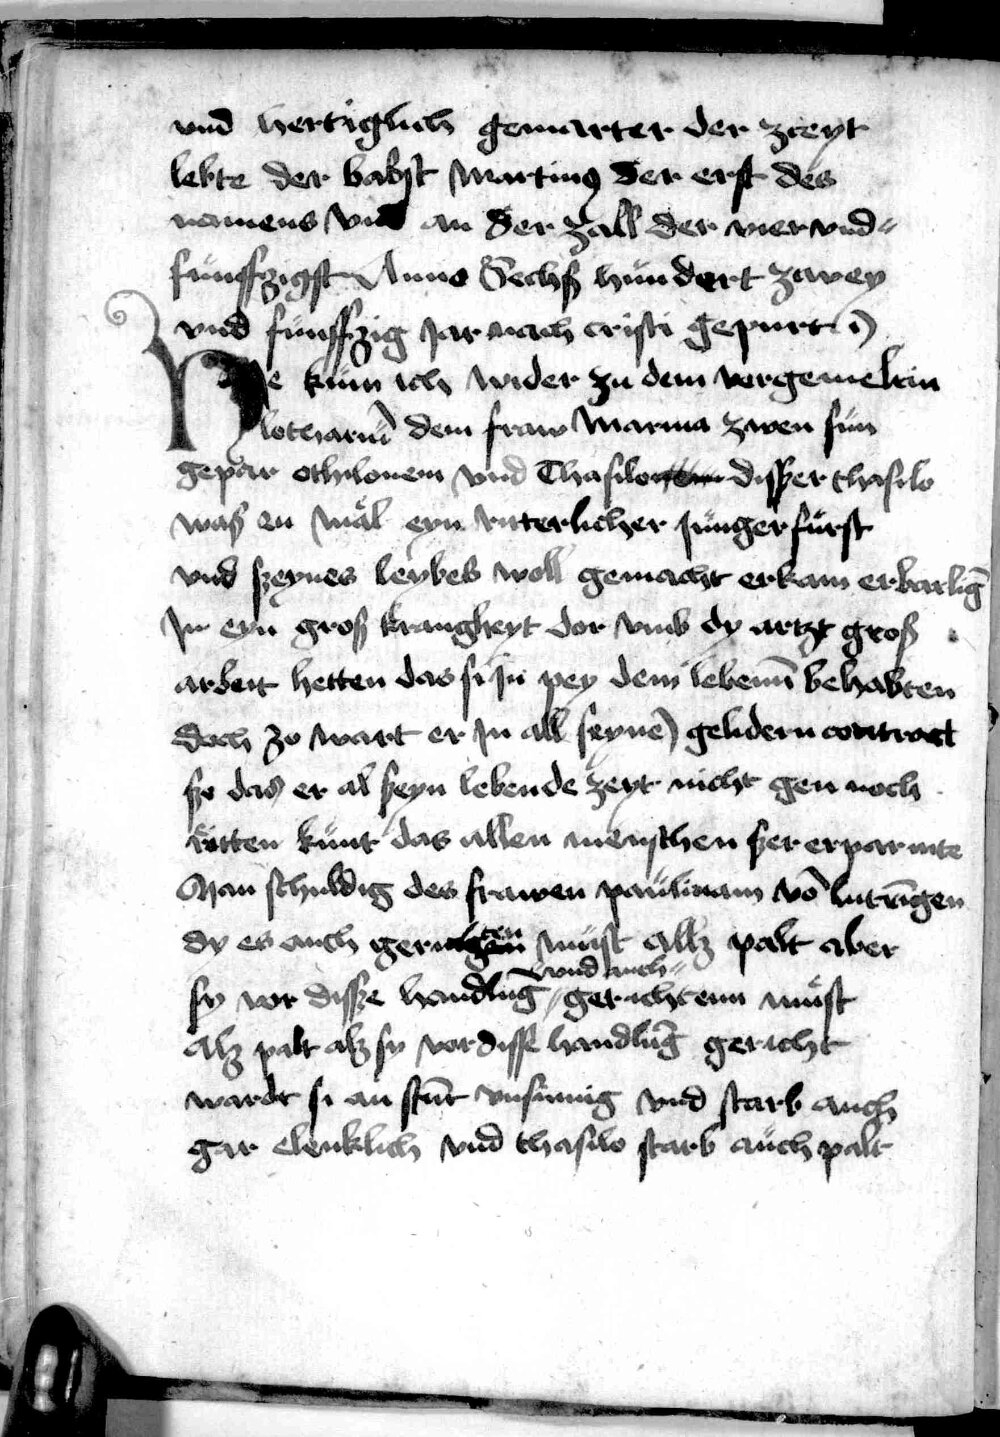 vnd hertiglich gemarter der zceyt
lebte der babst Martinꝯ der erst des
namens vnd an der zall der vier vnd=
fünffzigst Anno Sechß hündert zwey
vnd fünffzig jar nach cristi gepurt
Nue kum ich wider zu dem vorgemeltin
lotharium dem fraw Marina zwen sün
gepar othilonem vnd Thasilo disßer thasilo
waß eu mäl eyn ritterlicher jünger fürst
vnd szeynes leybes woll gemacht er kam erbarligē
Jn eyn groß krangheyt dor vmb dy artzt groß
arbeit hetten das si jn pey dem lebenn̄ behabten
doch zo wart er jn all seynē gelidern contract
so das er al szeyn lebende zeyt nicht gen noch
reitten künt das allen menschen szer erparmte
Man schuldig des frawen paulinam vō lutrīgen
dy es auch gerichten müst allß palt aber
vnd auch=
sy vor disße handlūg = gerichtenn müst
Alß palt alß sy vor disse handlūg gericht
wardt si an stūt vnsinnig vnd starb auch
gar elenklich vnd thasilo starb aüch palt